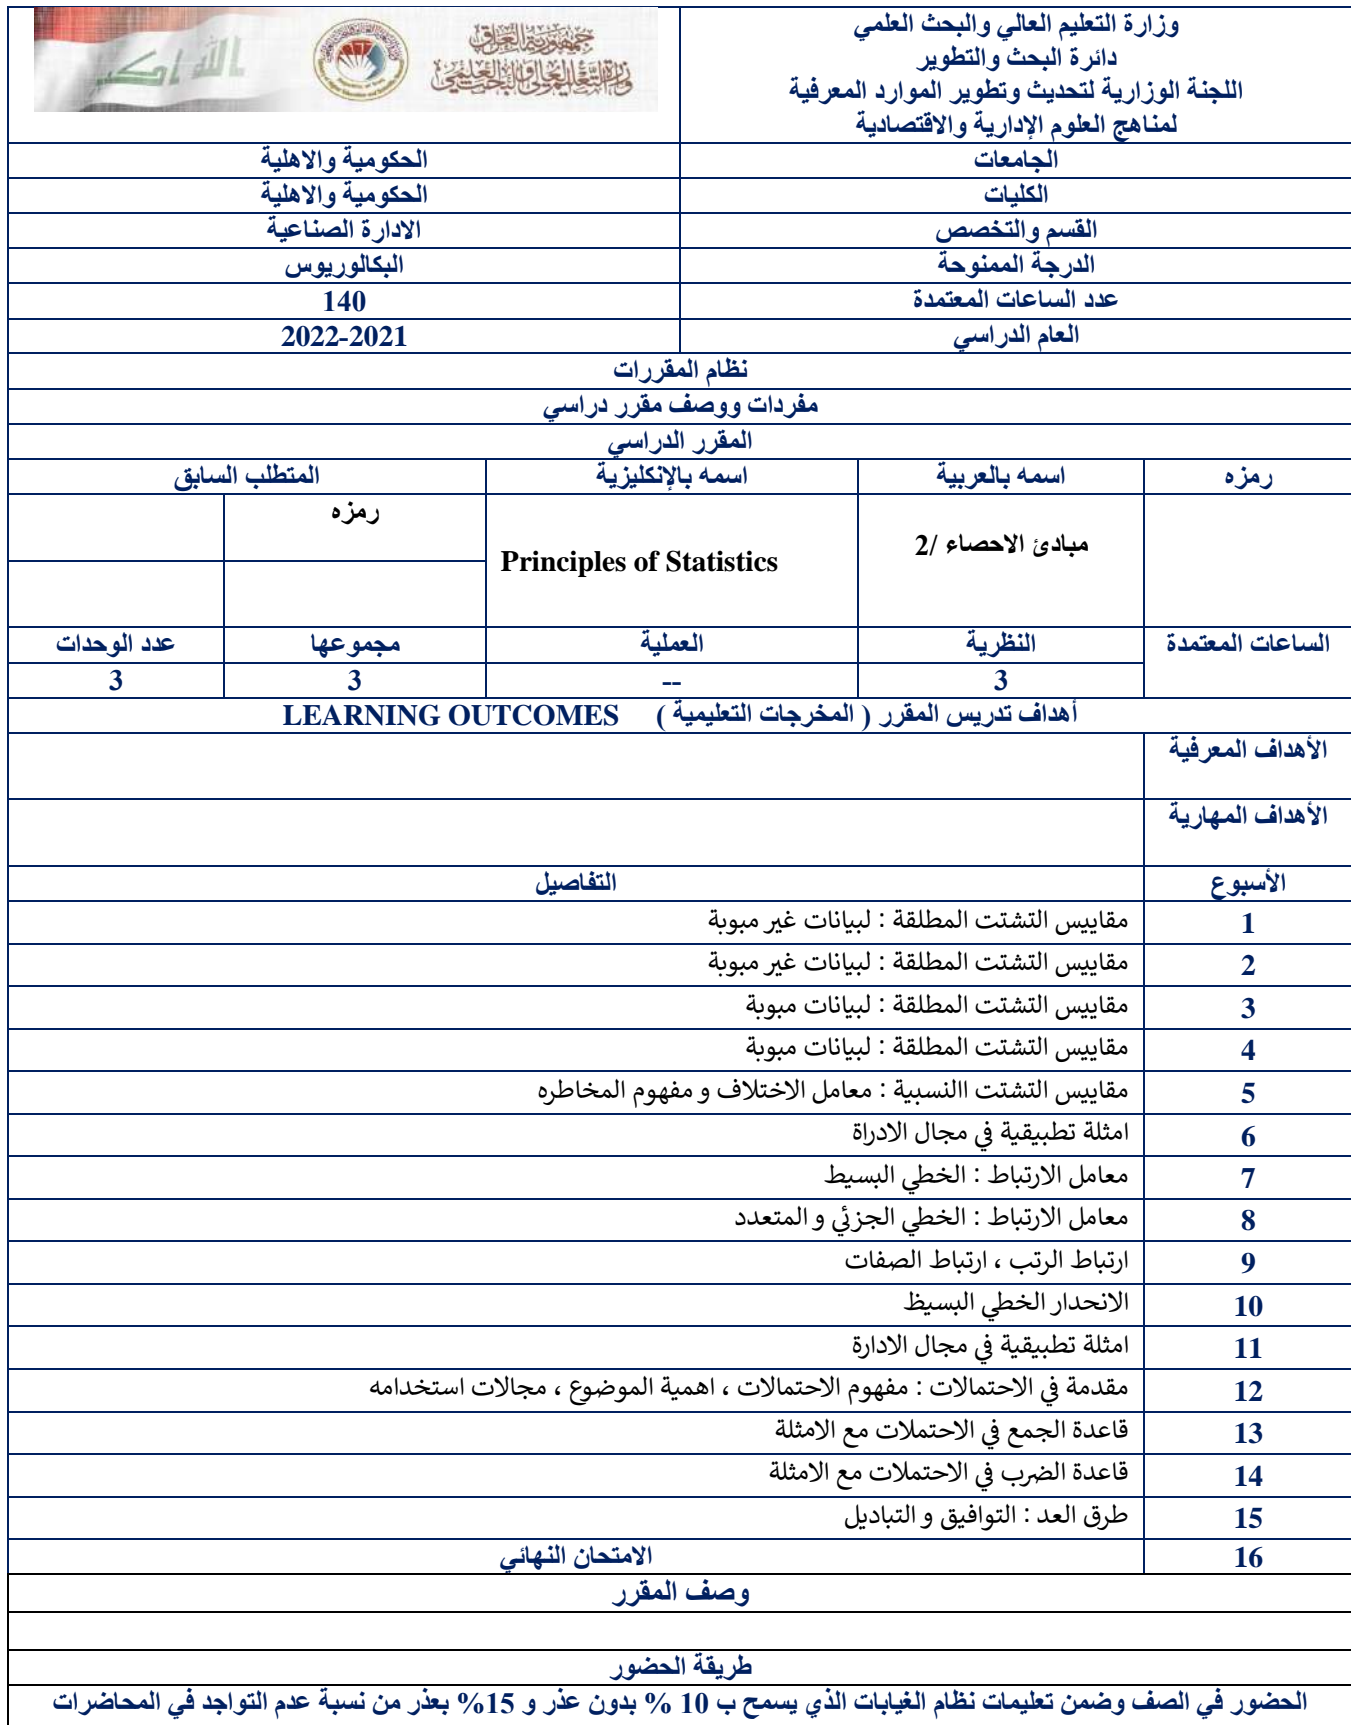 وزارة التعليم العالي والبحث العلمي
دائرة البحث والتطوير
اللجنة الوزارية لتحديث وتطوير الموارد المعرفية
لمناهج العلوم الإدارية والاقتصادية
جمهورية العراق
وزارة التعليم العالي والبحث العلمي
الله اكبر
الجامعات الحكومية والاهلية
الكليات الحكومية والاهلية
القسم والتخصص الادارة الصناعية
الدرجة الممنوحة البكالوريوس
عدد الساعات المعتمدة 140
العام الدراسي 2021-2022
نظام المقررات
مفردات ووصف مقرر دراسي
المقرر الدراسي
رمزه اسمه بالعربية اسمه بالإنكليزية المتطلب السابق
رمزه
مبادئ الاحصاء /2 Principles of Statistics
الساعات المعتمدة النظرية العملية مجموعها عدد الوحدات
3 -- 3 3
أهداف تدريس المقرر ( المخرجات التعليمية ) LEARNING OUTCOMES
الأهداف المعرفية
الأهداف المهارية
الأسبوع التفاصيل
1 مقاييس التشتت المطلقة : لبيانات غير مبوبة
2 مقاييس التشتت المطلقة : لبيانات غير مبوبة
3 مقاييس التشتت المطلقة : لبيانات مبوبة
4 مقاييس التشتت المطلقة : لبيانات مبوبة
5 مقاييس التشتت االنسبية : معامل الاختلاف و مفهوم المخاطره
6 امثلة تطبيقية في مجال الادراة
7 معامل الارتباط : الخطي البسيط
8 معامل الارتباط : الخطي الجزئي و المتعدد
9 ارتباط الرتب ، ارتباط الصفات
10 الانحدار الخطي البسيظ
11 امثلة تطبيقية في مجال الادارة
12 مقدمة في الاحتمالات : مفهوم الاحتمالات ، اهمية الموضوع ، مجالات استخدامه
13 قاعدة الجمع في الاحتملات مع الامثلة
14 قاعدة الضرب في الاحتملات مع الامثلة
15 طرق العد : التوافيق و التباديل
16 الامتحان النهائي
وصف المقرر
طريقة الحضور
الحضور في الصف وضمن تعليمات نظام الغيابات الذي يسمح ب 10 % بدون عذر و 15% بعذر من نسبة عدم التواجد في المحاضرات